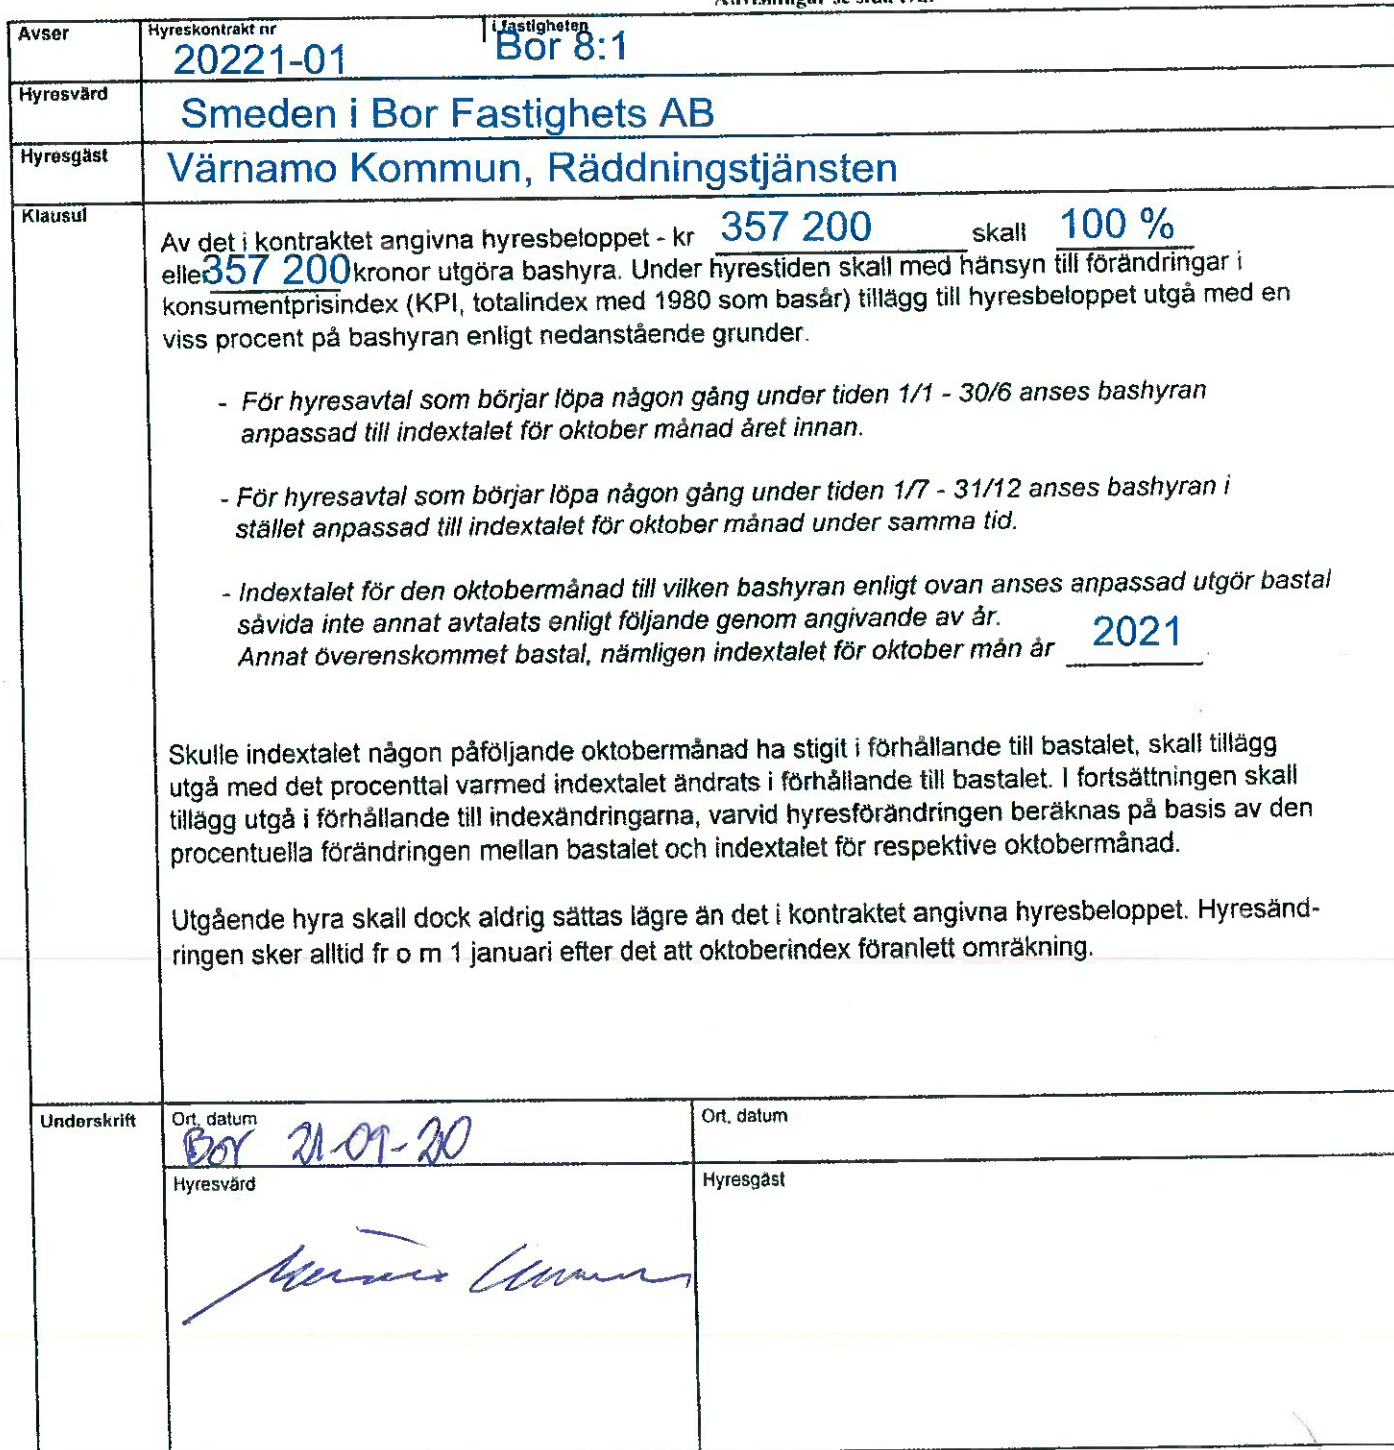 Avser
Hyreskontrakt nr
i fastigheten
20221-01
Bor 8:1
Hyresvärd
Smeden i Bor Fastighets AB
Hyresgäst
Värnamo Kommun, Räddningstjänsten
Klausul
Av det i kontraktet angivna hyresbeloppet - kr 357 200 skall 100 %
eller 357 200 kronor utgöra bashyra. Under hyrestiden skall med hänsyn till förändringar i
konsumentprisindex (KPI, totalindex med 1980 som basår) tillägg till hyresbeloppet utgå med en
viss procent på bashyran enligt nedanstående grunder.
- För hyresavtal som börjar löpa någon gång under tiden 1/1 - 30/6 anses bashyran
anpassad till indextalet för oktober månad året innan.
- För hyresavtal som börjar löpa någon gång under tiden 1/7 - 31/12 anses bashyran i
stället anpassad till indextalet för oktober månad under samma tid.
- Indextalet för den oktobermånad till vilken bashyran enligt ovan anses anpassad utgör bastal
såvida inte annat avtalats enligt följande genom angivande av år.
Annat överenskommet bastal, nämligen indextalet för oktober mån år 2021
Skulle indextalet någon påföljande oktobermånad ha stigit i förhållande till bastalet, skall tillägg
utgå med det procenttal varmed indextalet ändrats i förhållande till bastalet. I fortsättningen skall
tillägg utgå i förhållande till indexändringarna, varvid hyresförändringen beräknas på basis av den
procentuella förändringen mellan bastalet och indextalet för respektive oktobermånad.
Utgående hyra skall dock aldrig sättas lägre än det i kontraktet angivna hyresbeloppet. Hyresänd-
ringen sker alltid fr o m 1 januari efter det att oktoberindex föranlett omräkning.
Underskrift
Ort, datum
Ort, datum
Bor 21-09-20
Hyresvärd
Hyresgäst